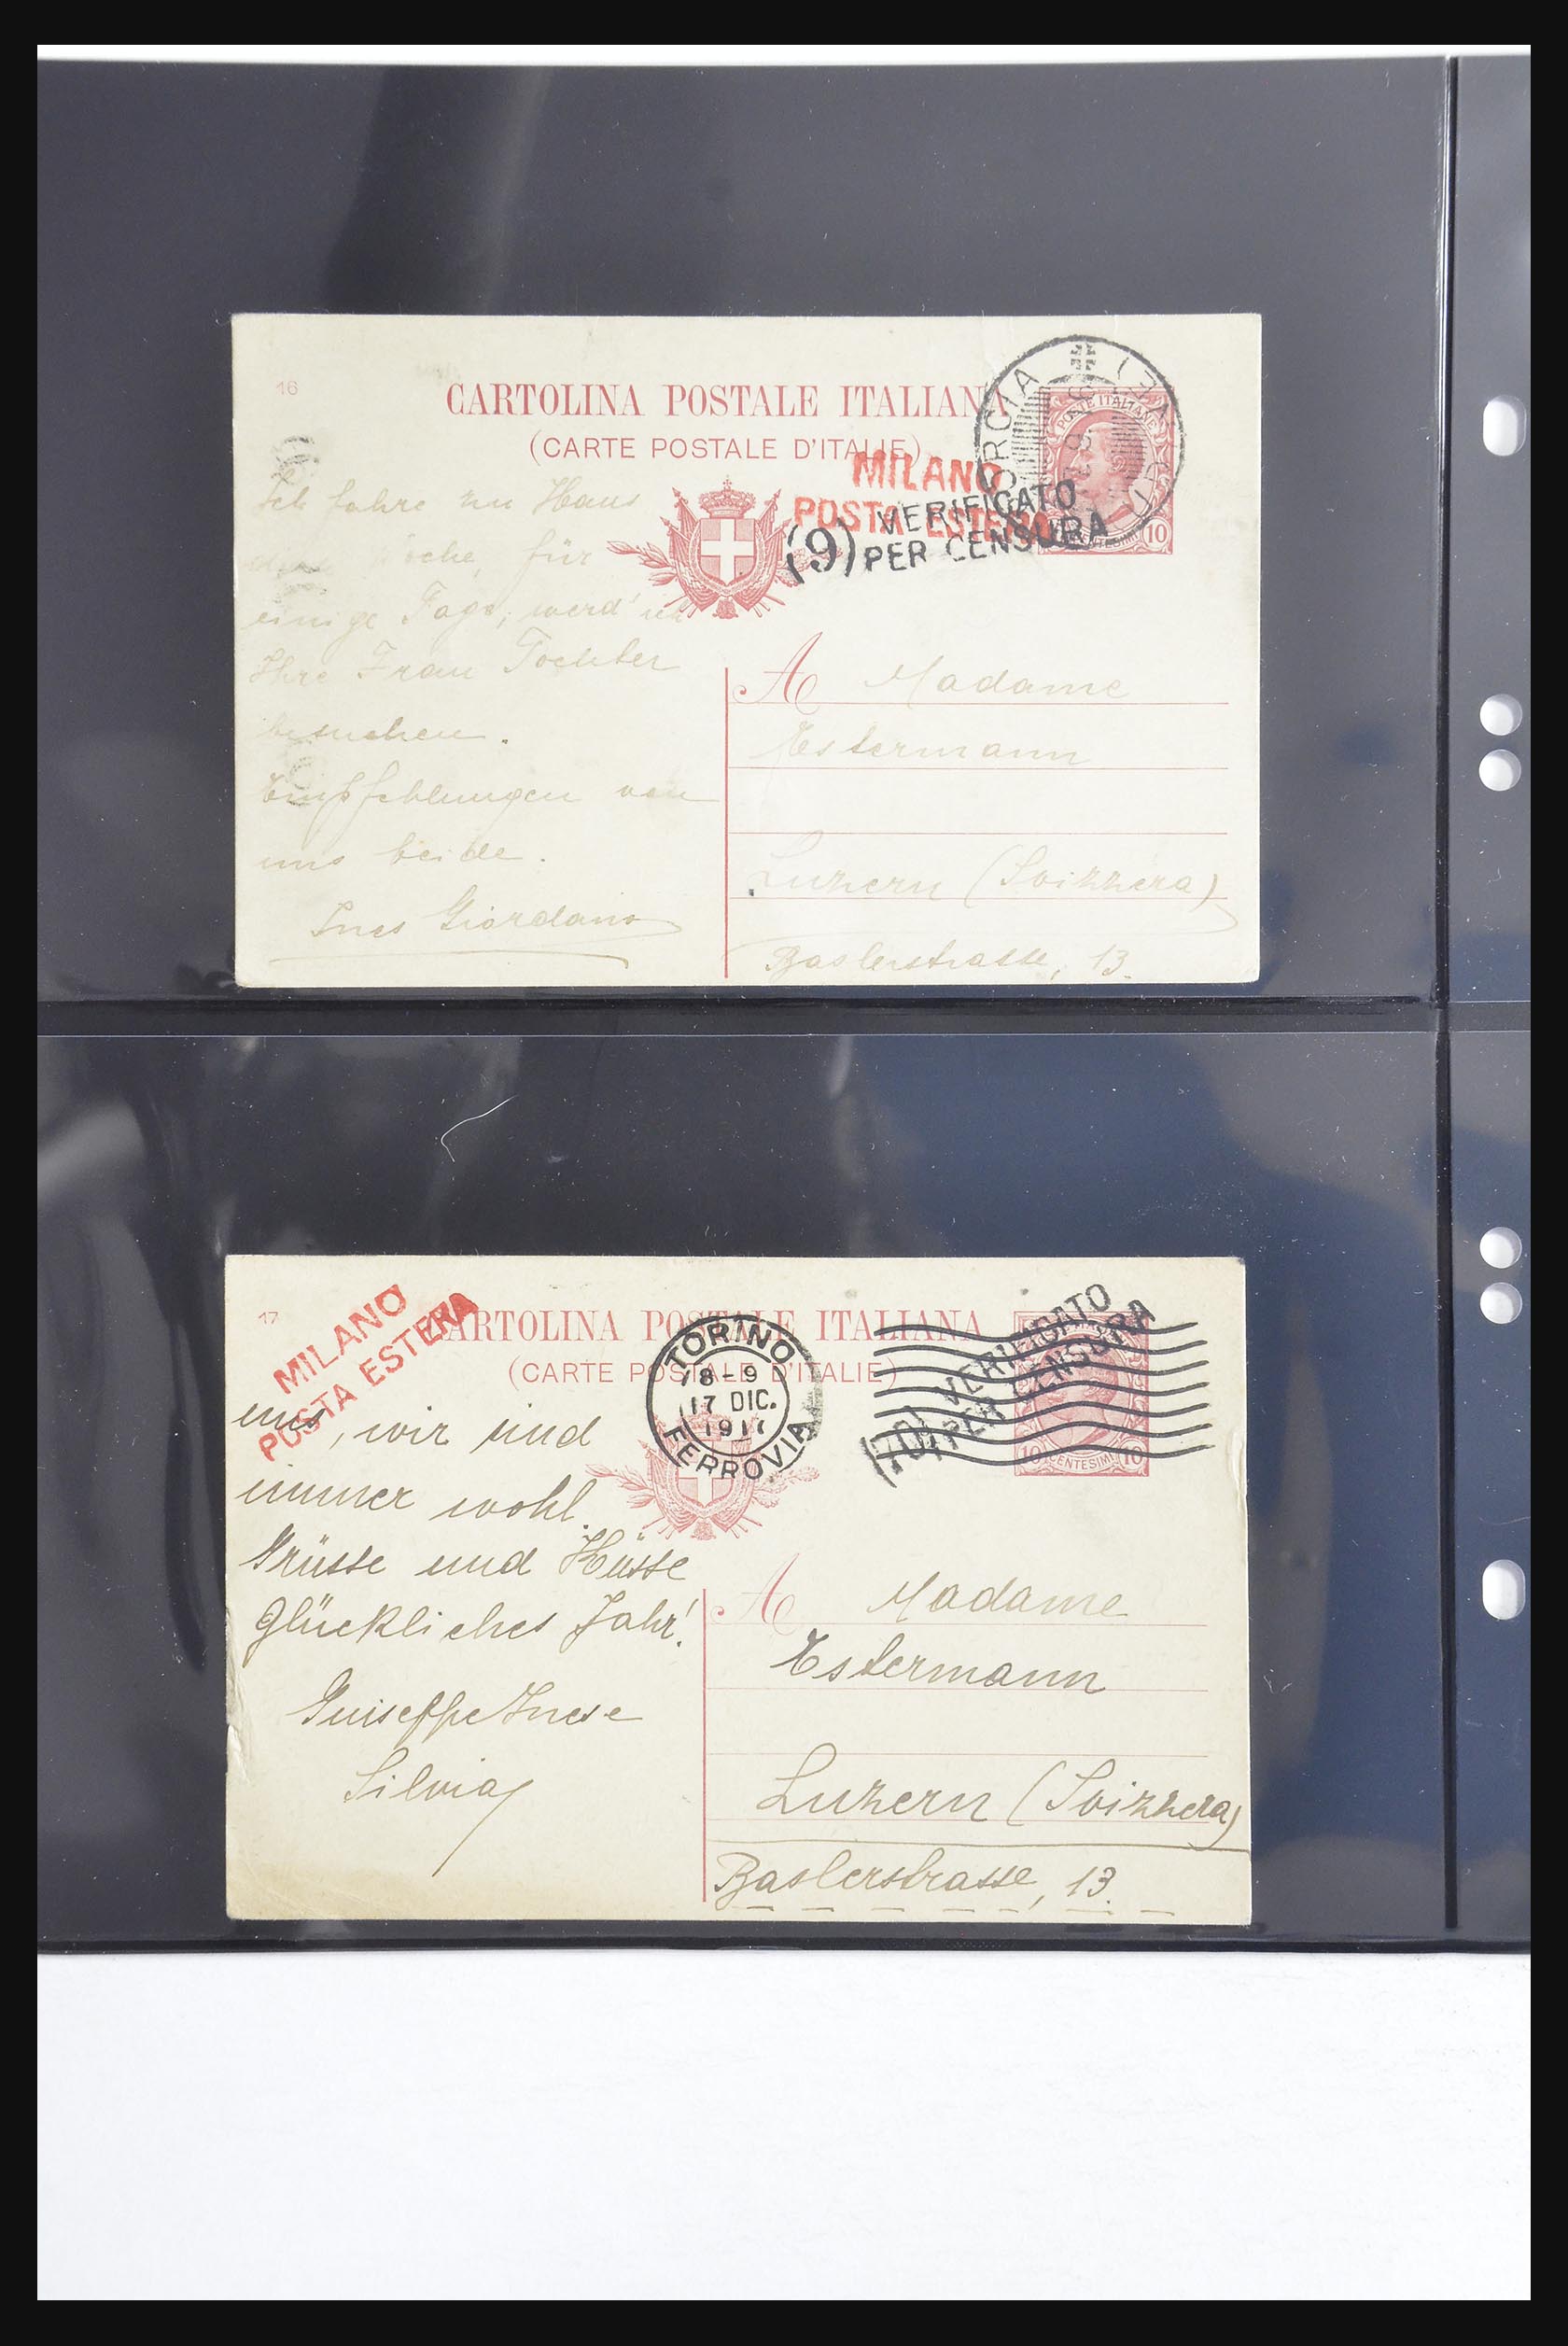 16
CARTOLINA POSTALE ITALIANA
(CARTE POSTALE D'ITALIE)
POSTE ITALIANE
10
MILANO
POSTA ESTERA
(9) VERIFICATO
PER CENSURA
Ich fahre zu Haus
für
einige Tage, werd' ich
Ihre Frau Tochter
besuchen.
Empfehlungen von
uns beide.
Ines Giordano
A Madame
Estermann
Luzern (Svizzera)
Baslerstrasse, 13.
17
CARTOLINA POSTALE ITALIANA
(CARTE POSTALE D'ITALIE)
MILANO
POSTA ESTERA
TORINO
8-9
17 DIC.
1917
FERROVIA
VERIFICATO
PER CENSURA
10 CENTESIMI 10
uns, wir sind
immer wohl.
Grüsse und Küsse
Glückliches Jahr!
Guiseppe Inese
Silvia
A Madame
Estermann
Luzern (Svizzera)
Baslerstrasse, 13.